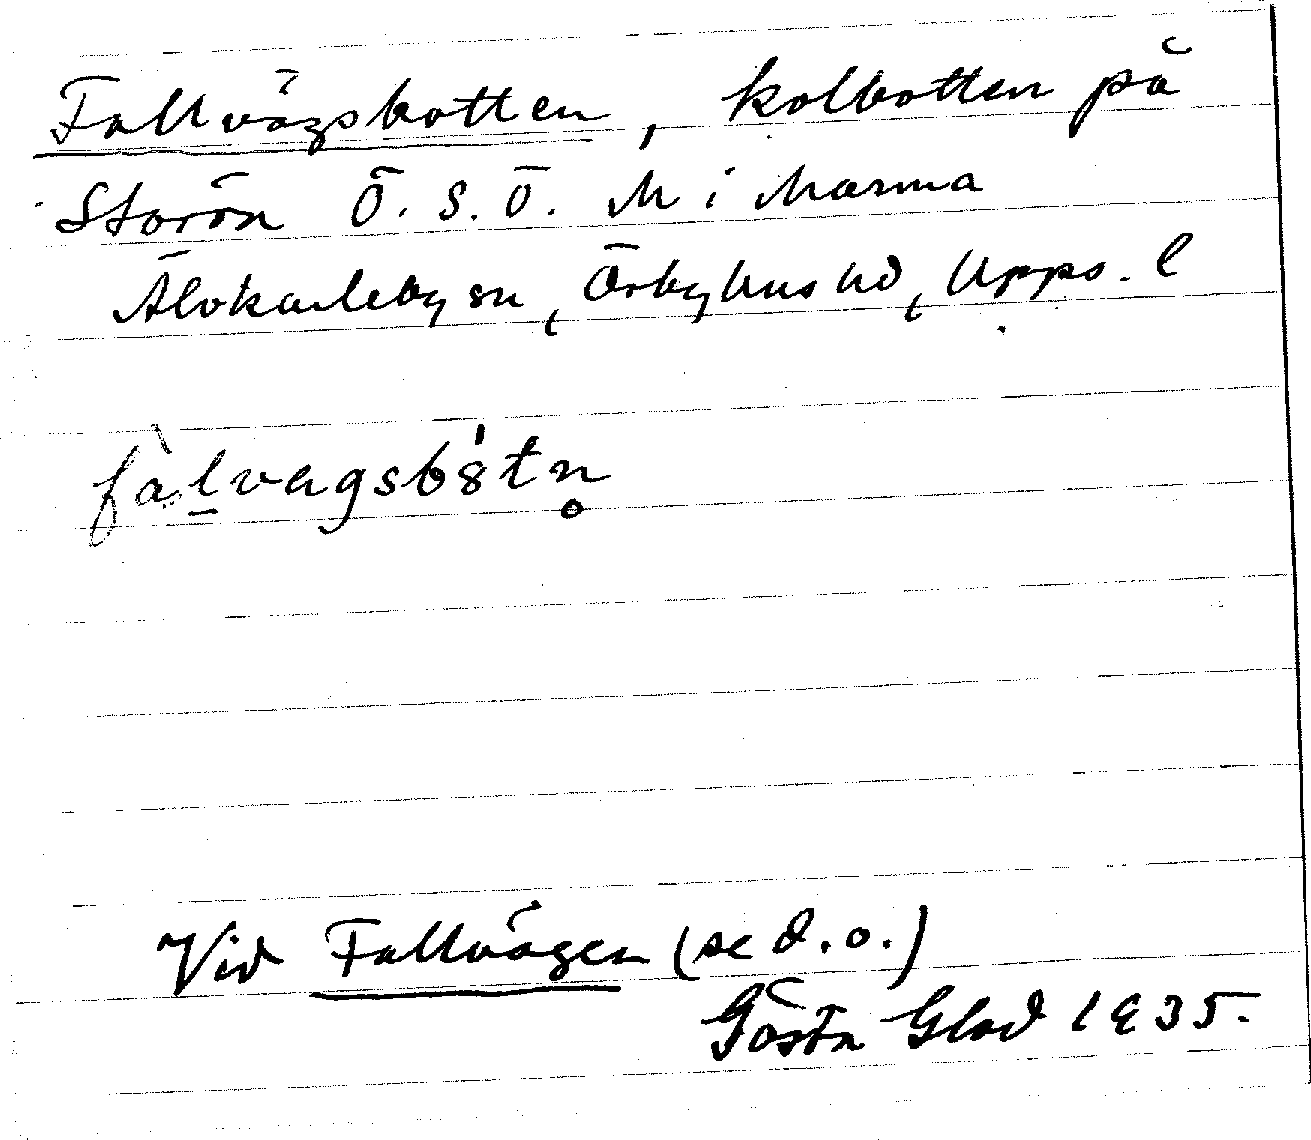 Fallvägsbotten, kolbotten på
Storön Ö. S. Ö. M i Marma
Älvkarleby sn, Örbyhus hd, Upps. l
fàlvagsbˈ8tn̥
Vid Fallvägen (se d. o.)
Gösta Glad 1935.